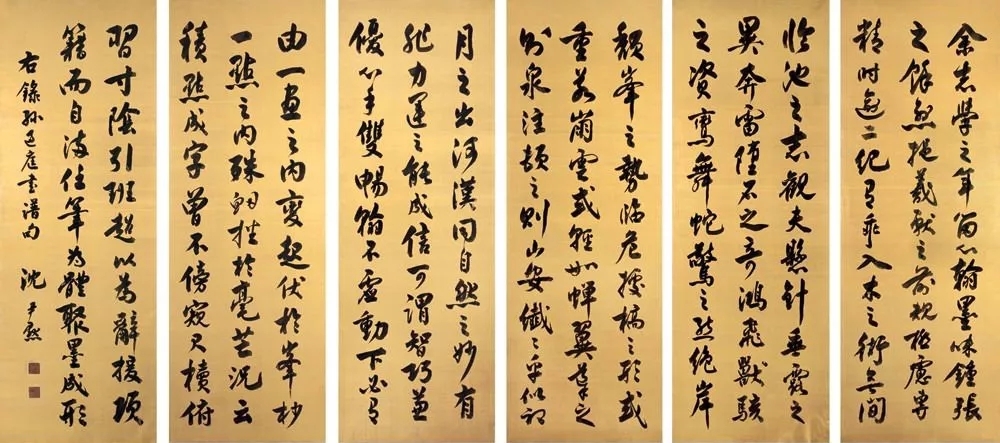 余志學之年留心翰墨味鍾張
之餘烈挹羲獻之前規極慮專
精時逾二紀有乖入木之術無間
臨池之志觀夫懸針垂露之
異奔雷墮石之奇鴻飛獸駭
之資鸞舞蛇驚之態絕岸
頹峯之勢臨危據槁之形或
重若崩雲或輕如蟬翼導之
則泉注頓之則山安纖纖乎似初
月之出河漢同自然之妙有
非力運之能成信可謂智巧兼
優心手雙暢翰不虛動下必有
由一畫之內變起伏於峯杪
一點之內殊衄挫於毫芒況云
積點成字曾不傍窺尺櫝俯
習寸陰引班超以為辭援項
籍而自滿任筆為體聚墨成形
右錄孫過庭書譜句 沈尹默